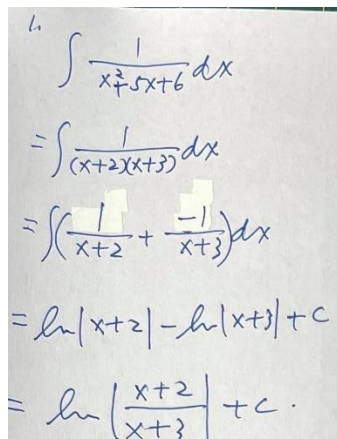 1.
∫ 1/(x²+5x+6) dx
= ∫ 1/((x+2)(x+3)) dx
= ∫(1/(x+2) + -1/(x+3))dx
= ln|x+2| - ln|x+3| + c
= ln|(x+2)/(x+3)| + c.